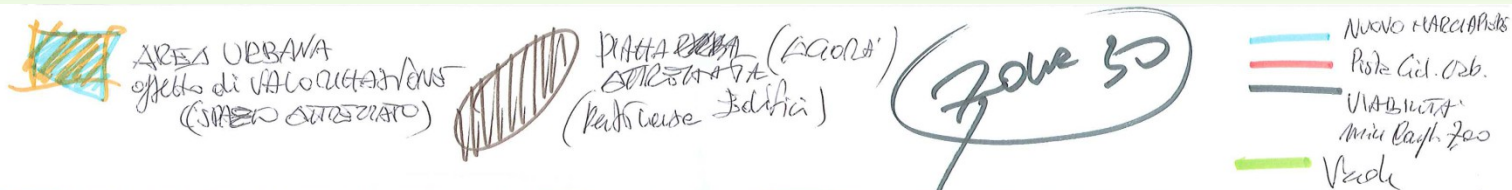 AREA URBANA
oggetto di VALORIZZAZIONE
(SPAZIO ATTREZZATO)
PIAZZA (AGORA')
ATTREZZATA
Edifici)
Zone 30
NUOVO MARCIAPIEDE
Pista Cicl. Urb.
VIABILITA'
Verde